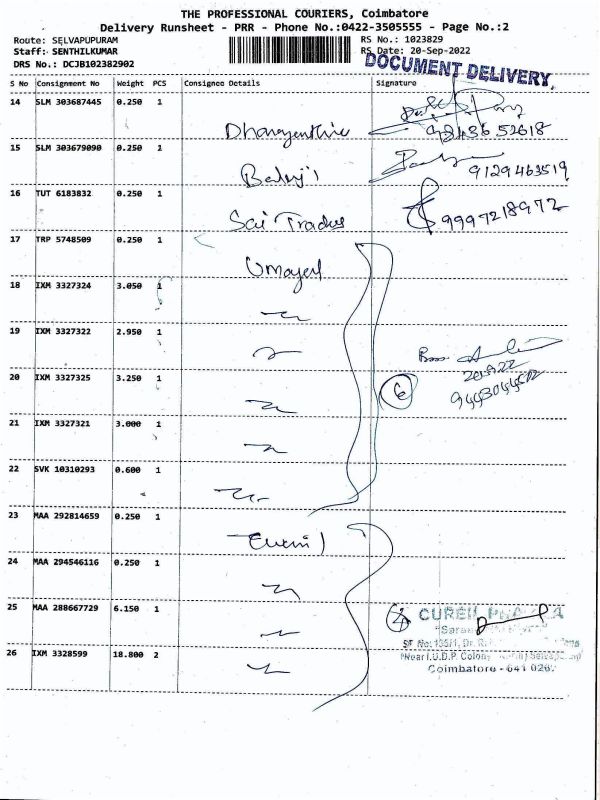 THE PROFESSIONAL COURIERS, Coimbatore
Delivery Runsheet - PRR - Phone No.:0422-3505555 - Page No.:2
Route: SELVAPUPURAM RS No.: 1023829
Staff: SENTHILKUMAR RS Date: 20-Sep-2022
DRS No.: DCJB102382902
DOCUMENT DELIVERY
S No Consignment No Weight PCS Consignee Details Signature
14 SLM 303687445 0.250 1
98436 52618
15 SLM 303679090 0.250 1
Balaji 9129463519
16 TUT 6183832 0.250 1
Sai Traders 9997218972
17 TRP 5748509 0.250 1
Umayal
18 IXM 3327324 3.050 1
19 IXM 3327322 2.950 1
20 IXM 3327325 3.250 1
6
21 IXM 3327321 3.000 1
22 SVK 10310293 0.600 1
23 MAA 292814659 0.250 1
24 MAA 294546116 0.250 1
25 MAA 288667729 6.150 1
4
26 IXM 3328599 18.800 2
Near I.U.D.P. Colony
Coimbatore - 641 026.